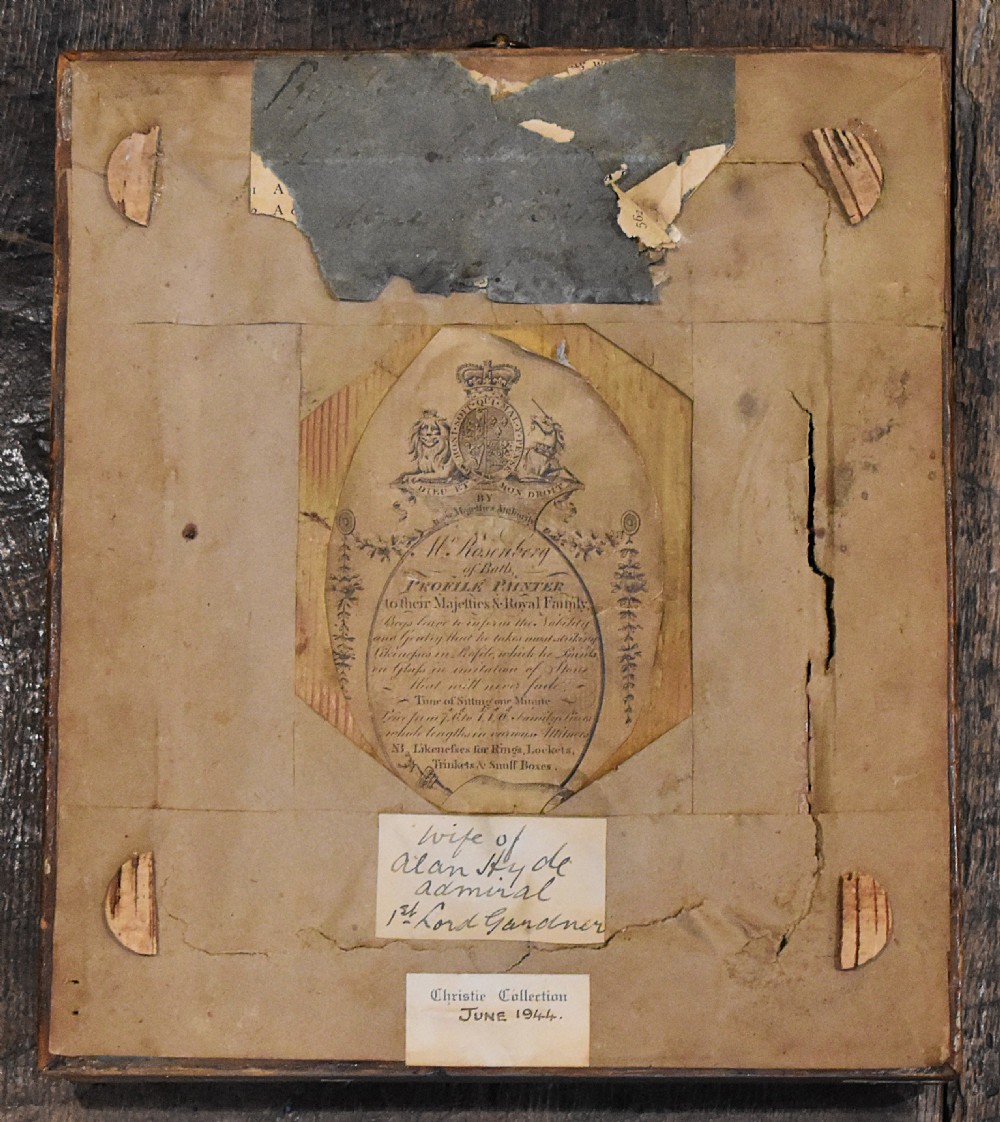 1 A
2 A
562
HONI · SOIT · QUI · MAL · Y · PENSE
DIEU ET MON DROIT
BY
Majesties Authority
Mr. Rosenberg
of Bath,
PROFILE PAINTER
to their Majesties & Royal Family,
Begs leave to inform the Nobility
and Gentry that he takes most striking
Likenesses in Profile, which he Paints
on Glass in imitation of Stone
that will never fade,
Time of Sitting one Minute
Family Pieces
whole lengths in various Attitudes
NB. Likenesses for Rings, Lockets,
Trinkets & Snuff Boxes.
Wife of
Alan Hyde
admiral
1st Lord Gardner
Christie Collection
JUNE 1944.